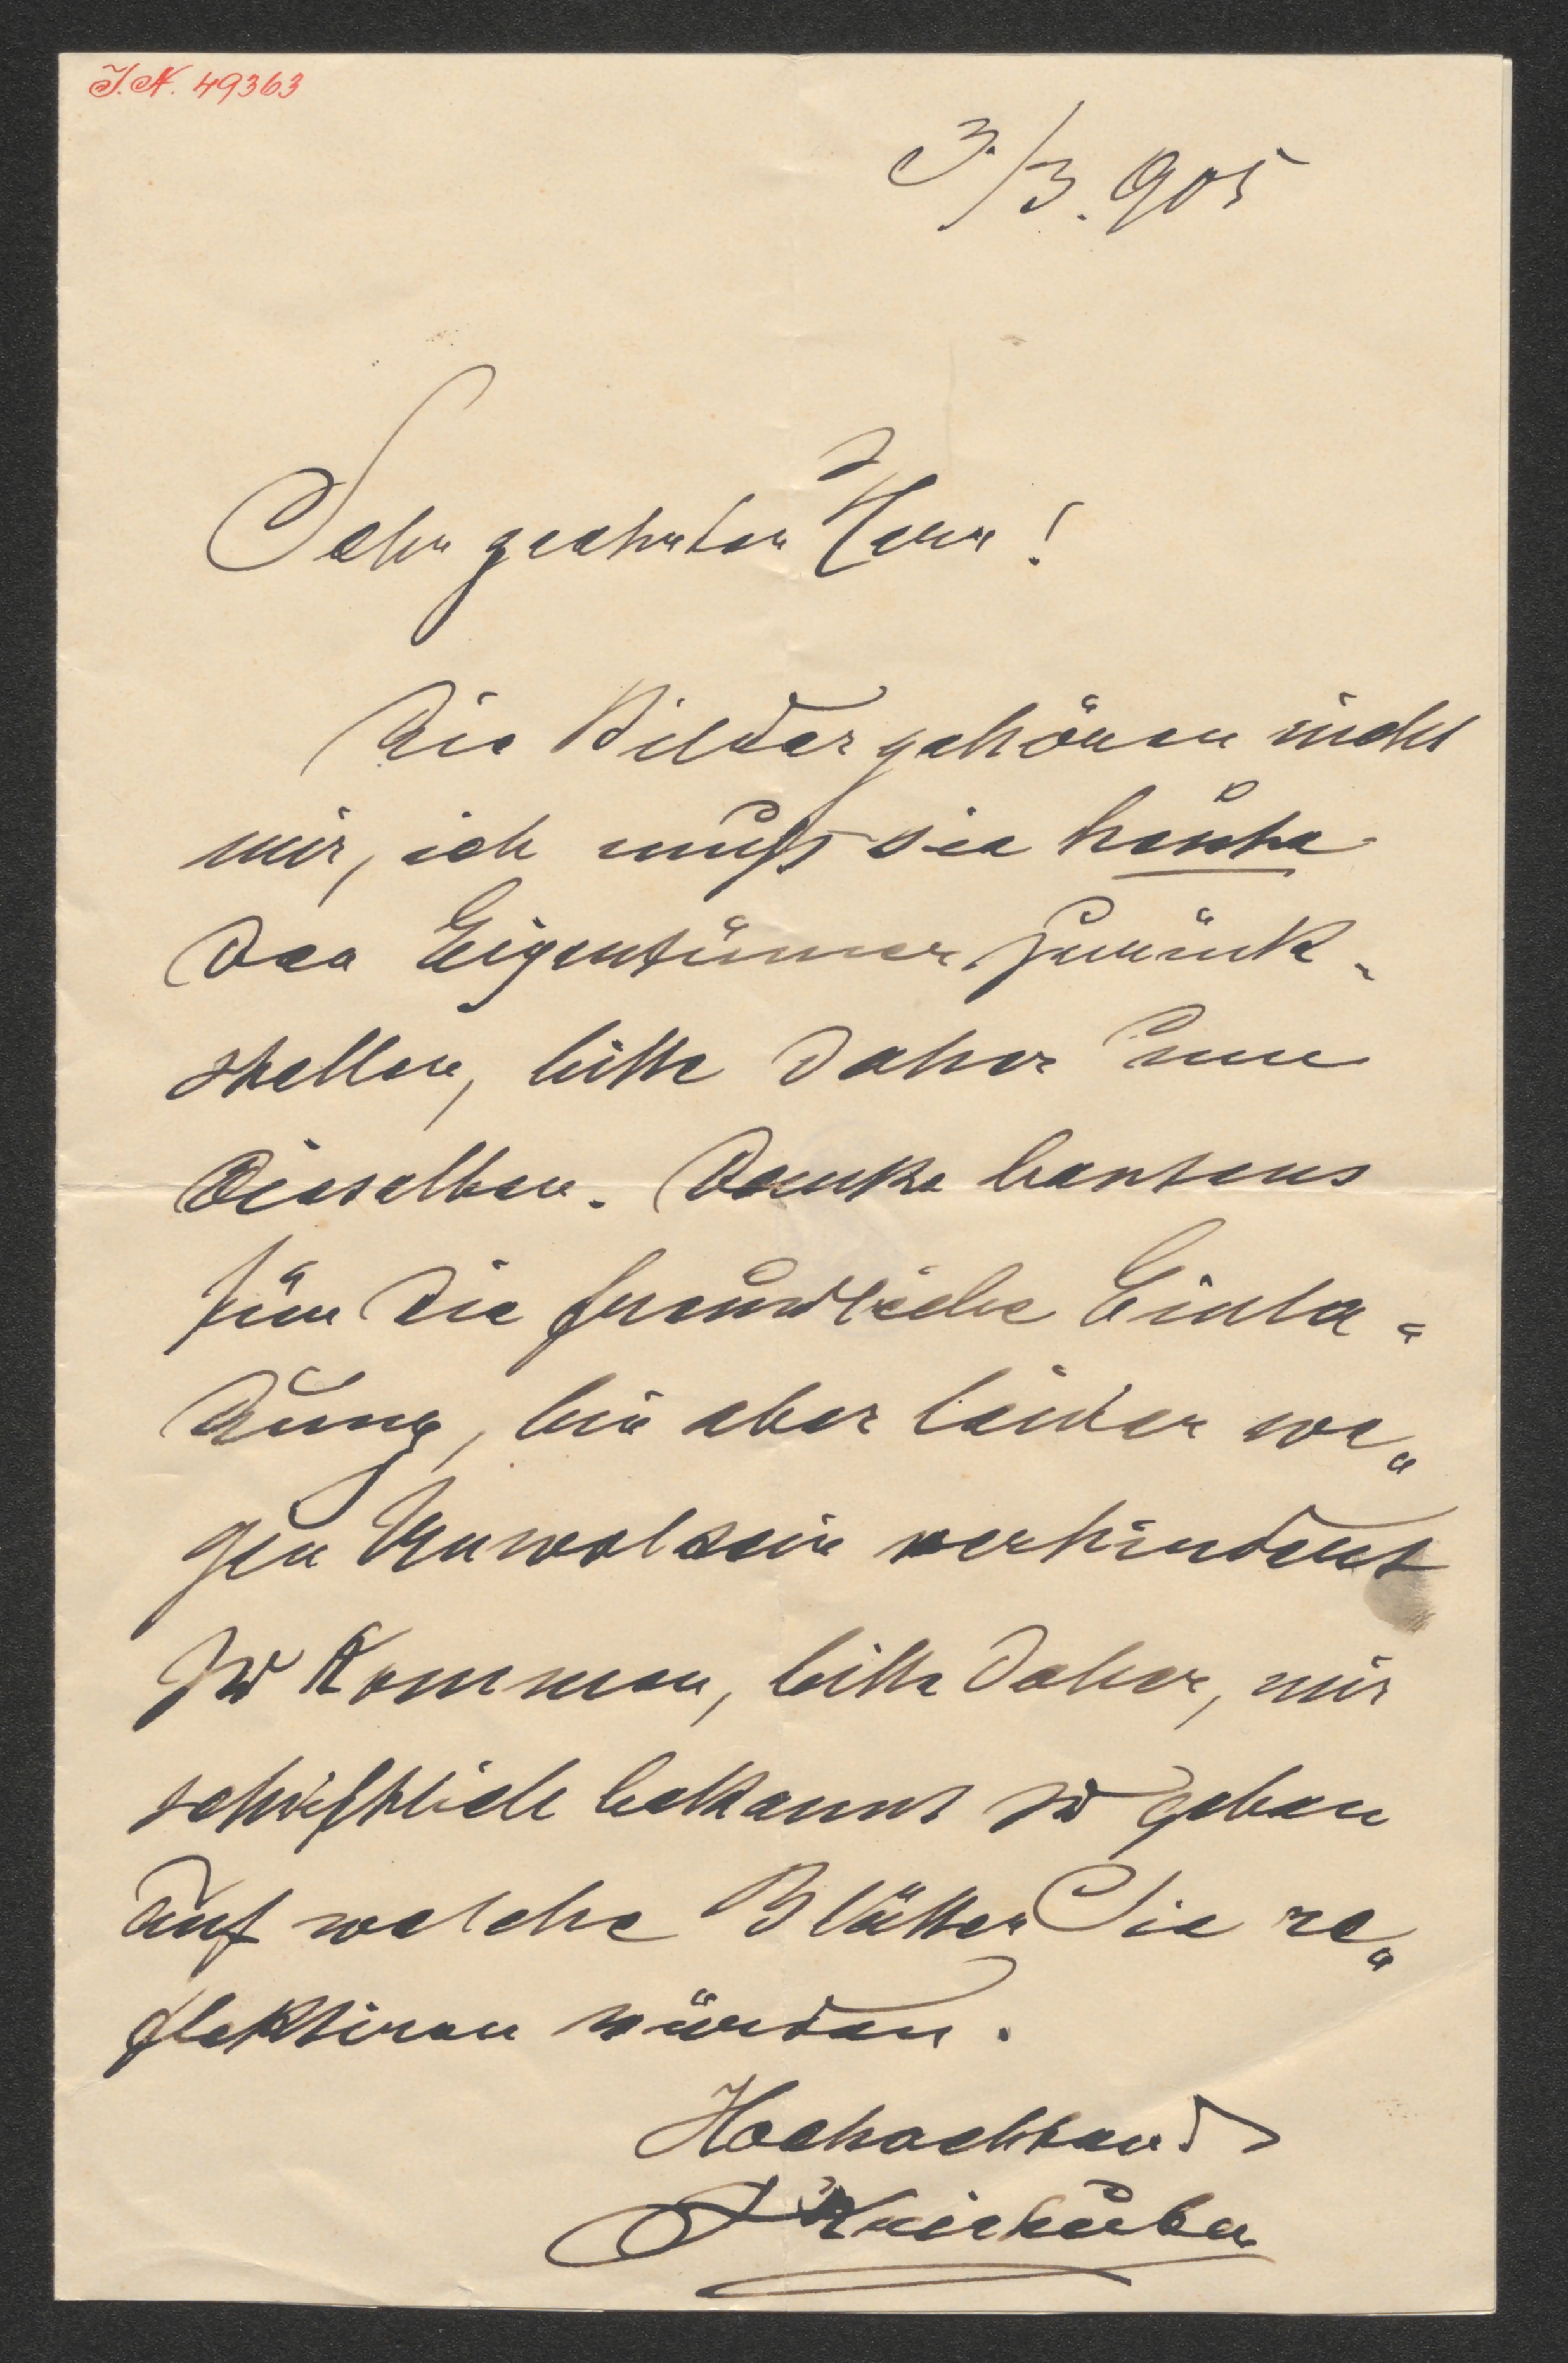 I.N. 49363
3./3. 905
Sehr geehrter Herr!
Die Bilder gehören nicht
mir, ich muß sie heute
dem Eigentümer zurück-
stellen, bitte daher um
dieselben. Danke bestens
für die freundliche Einla-
dung, bin aber leider we-
gen Unwolsein verhindert
zu kommen, bitte daher, mir
schriftlich bekannt zu geben
auf welche Blätter Sie re-
flektiren würden.
Hochachtend
Kriehuber